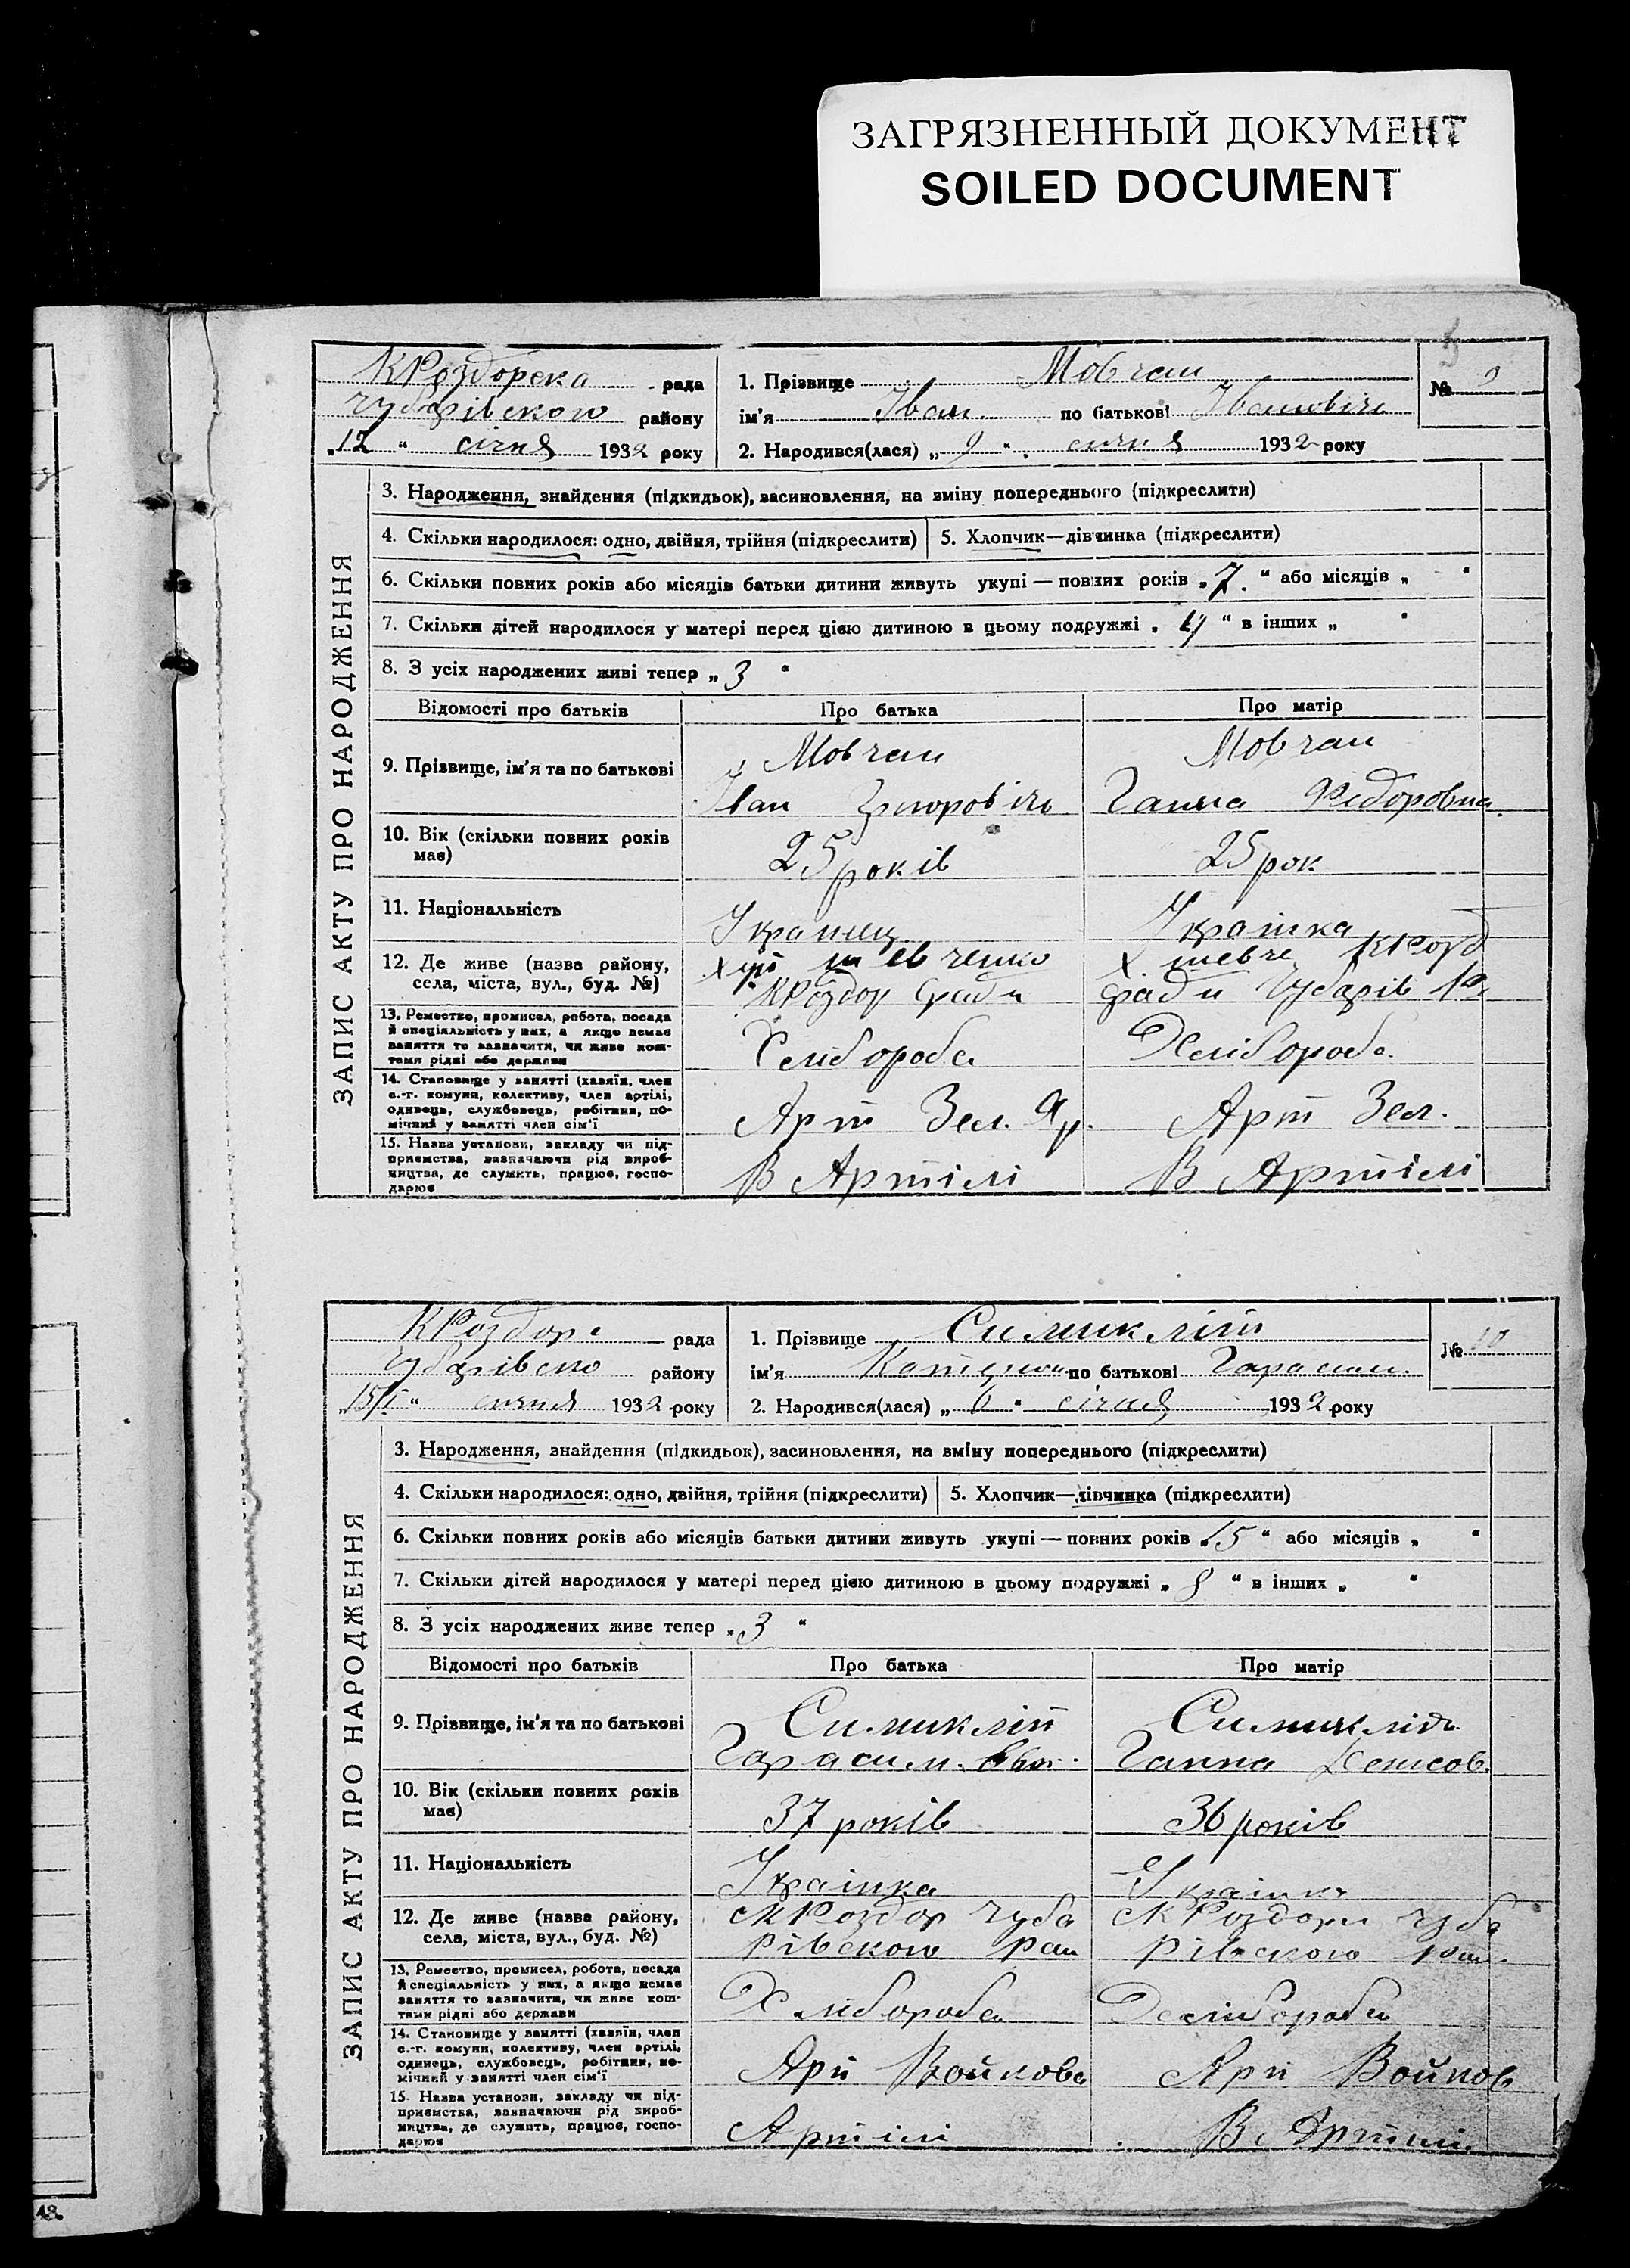 ЗАГРЯЗНЕННЫЙ ДОКУМЕНТ
SOILED DOCUMENT
5
КРоздорска рада
Чубарівского району
„12“ січня 1932 року
1. Прізвище Мовчан
ім'я Іван по батькові Іванович
2. Народився(лася) „9“ січня 1932 року
№ 9
ЗАПИС АКТУ ПРО НАРОДЖЕННЯ
3. Народження, знайдення (підкидьок), засиновлення, на зміну попереднього (підкреслити)
4. Скільки народилося: одно, двійня, трійня (підкреслити)
5. Хлопчик—дівчинка (підкреслити)
6. Скільки повних років або місяців батьки дитини живуть укупі — повних років „7“ або місяців „ “
7. Скільки дітей народилося у матері перед цією дитиною в цьому подружжі „4“ в інших „ “
8. З усіх народжених живі тепер „3“
Відомості про батьків Про батька Про матір
9. Прізвище, ім'я та по батькові
Мовчан
Іван Григоров'ичь
Мовчан
Ганна Федоровна
10. Вік (скільки повних років
має)
25 років
25 рок
11. Національність
Украинец
Украінка
12. Де живе (назва району,
села, міста, вул., буд. №)
Хут Шевченко
КРоздор Ради
Х. Шевче КРозд
ради Чубарів
13. Ремество, промисел, робота, посада
й спеціяльність у них, а якщо немає
заняття то зазначити, чи живе кош-
тами рідні або держави
Хлібороб
Хлібороб
14. Становище у занятті (хазяїн, член
с.-г. комуни, колективу, член артілі,
одинець, службовець, робітник, по-
мічний у занятті член сім'ї
Арт Зел. Яр.
Арт Зел.
15. Назва установи, закладу чи під-
приємства, зазначаючи рід вироб-
ництва, де служить, працює, госпо-
дарює
В Артілі
В Артілі
КРоздор рада
Чубарівско району
„15/I“ сичня 1932 року
1. Прізвище Симикліт
ім'я по батькові Гарасим.
2. Народився(лася) „6“ січня 1932 року
№ 10
ЗАПИС АКТУ ПРО НАРОДЖЕННЯ
3. Народження, знайдення (підкидьок), засиновлення, на зміну попереднього (підкреслити)
4. Скільки народилося: одно, двійня, трійня (підкреслити)
5. Хлопчик—дівчинка (підкреслити)
6. Скільки повних років або місяців батьки дитини живуть укупі — повних років „15“ або місяців „ “
7. Скільки дітей народилося у матері перед цією дитиною в цьому подружжі „8“ в інших „ “
8. З усіх народжених живе тепер „3“
Відомості про батьків Про батька Про матір
9. Прізвище, ім'я та по батькові
Симикліт
Гарасим
Симикліт
Ганна Денисов.
10. Вік (скільки повних років
має)
37 років
36 років
11. Національність
Украінка
Украінка
12. Де живе (назва району,
села, міста, вул., буд. №)
с КРоздор Чуба
рівского Рай
с КРоздори Чуба
рівского рай
13. Ремество, промисел, робота, посада
й спеціяльність у них, а якщо немає
заняття то зазначити, чи живе кош-
тами рідні або держави
Хлібороб
Хлібороб
14. Становище у занятті (хазяїн, член
с.-г. комуни, колективу, член артілі,
одинець, службовець, робітник, по-
мічний у занятті член сім'ї
Арт Войкова
Арт Войков
15. Назва установи, закладу чи під-
приємства, зазначаючи рід вироб-
ництва, де служить, працює, госпо-
дарює
Артілі
В Артілі
48.